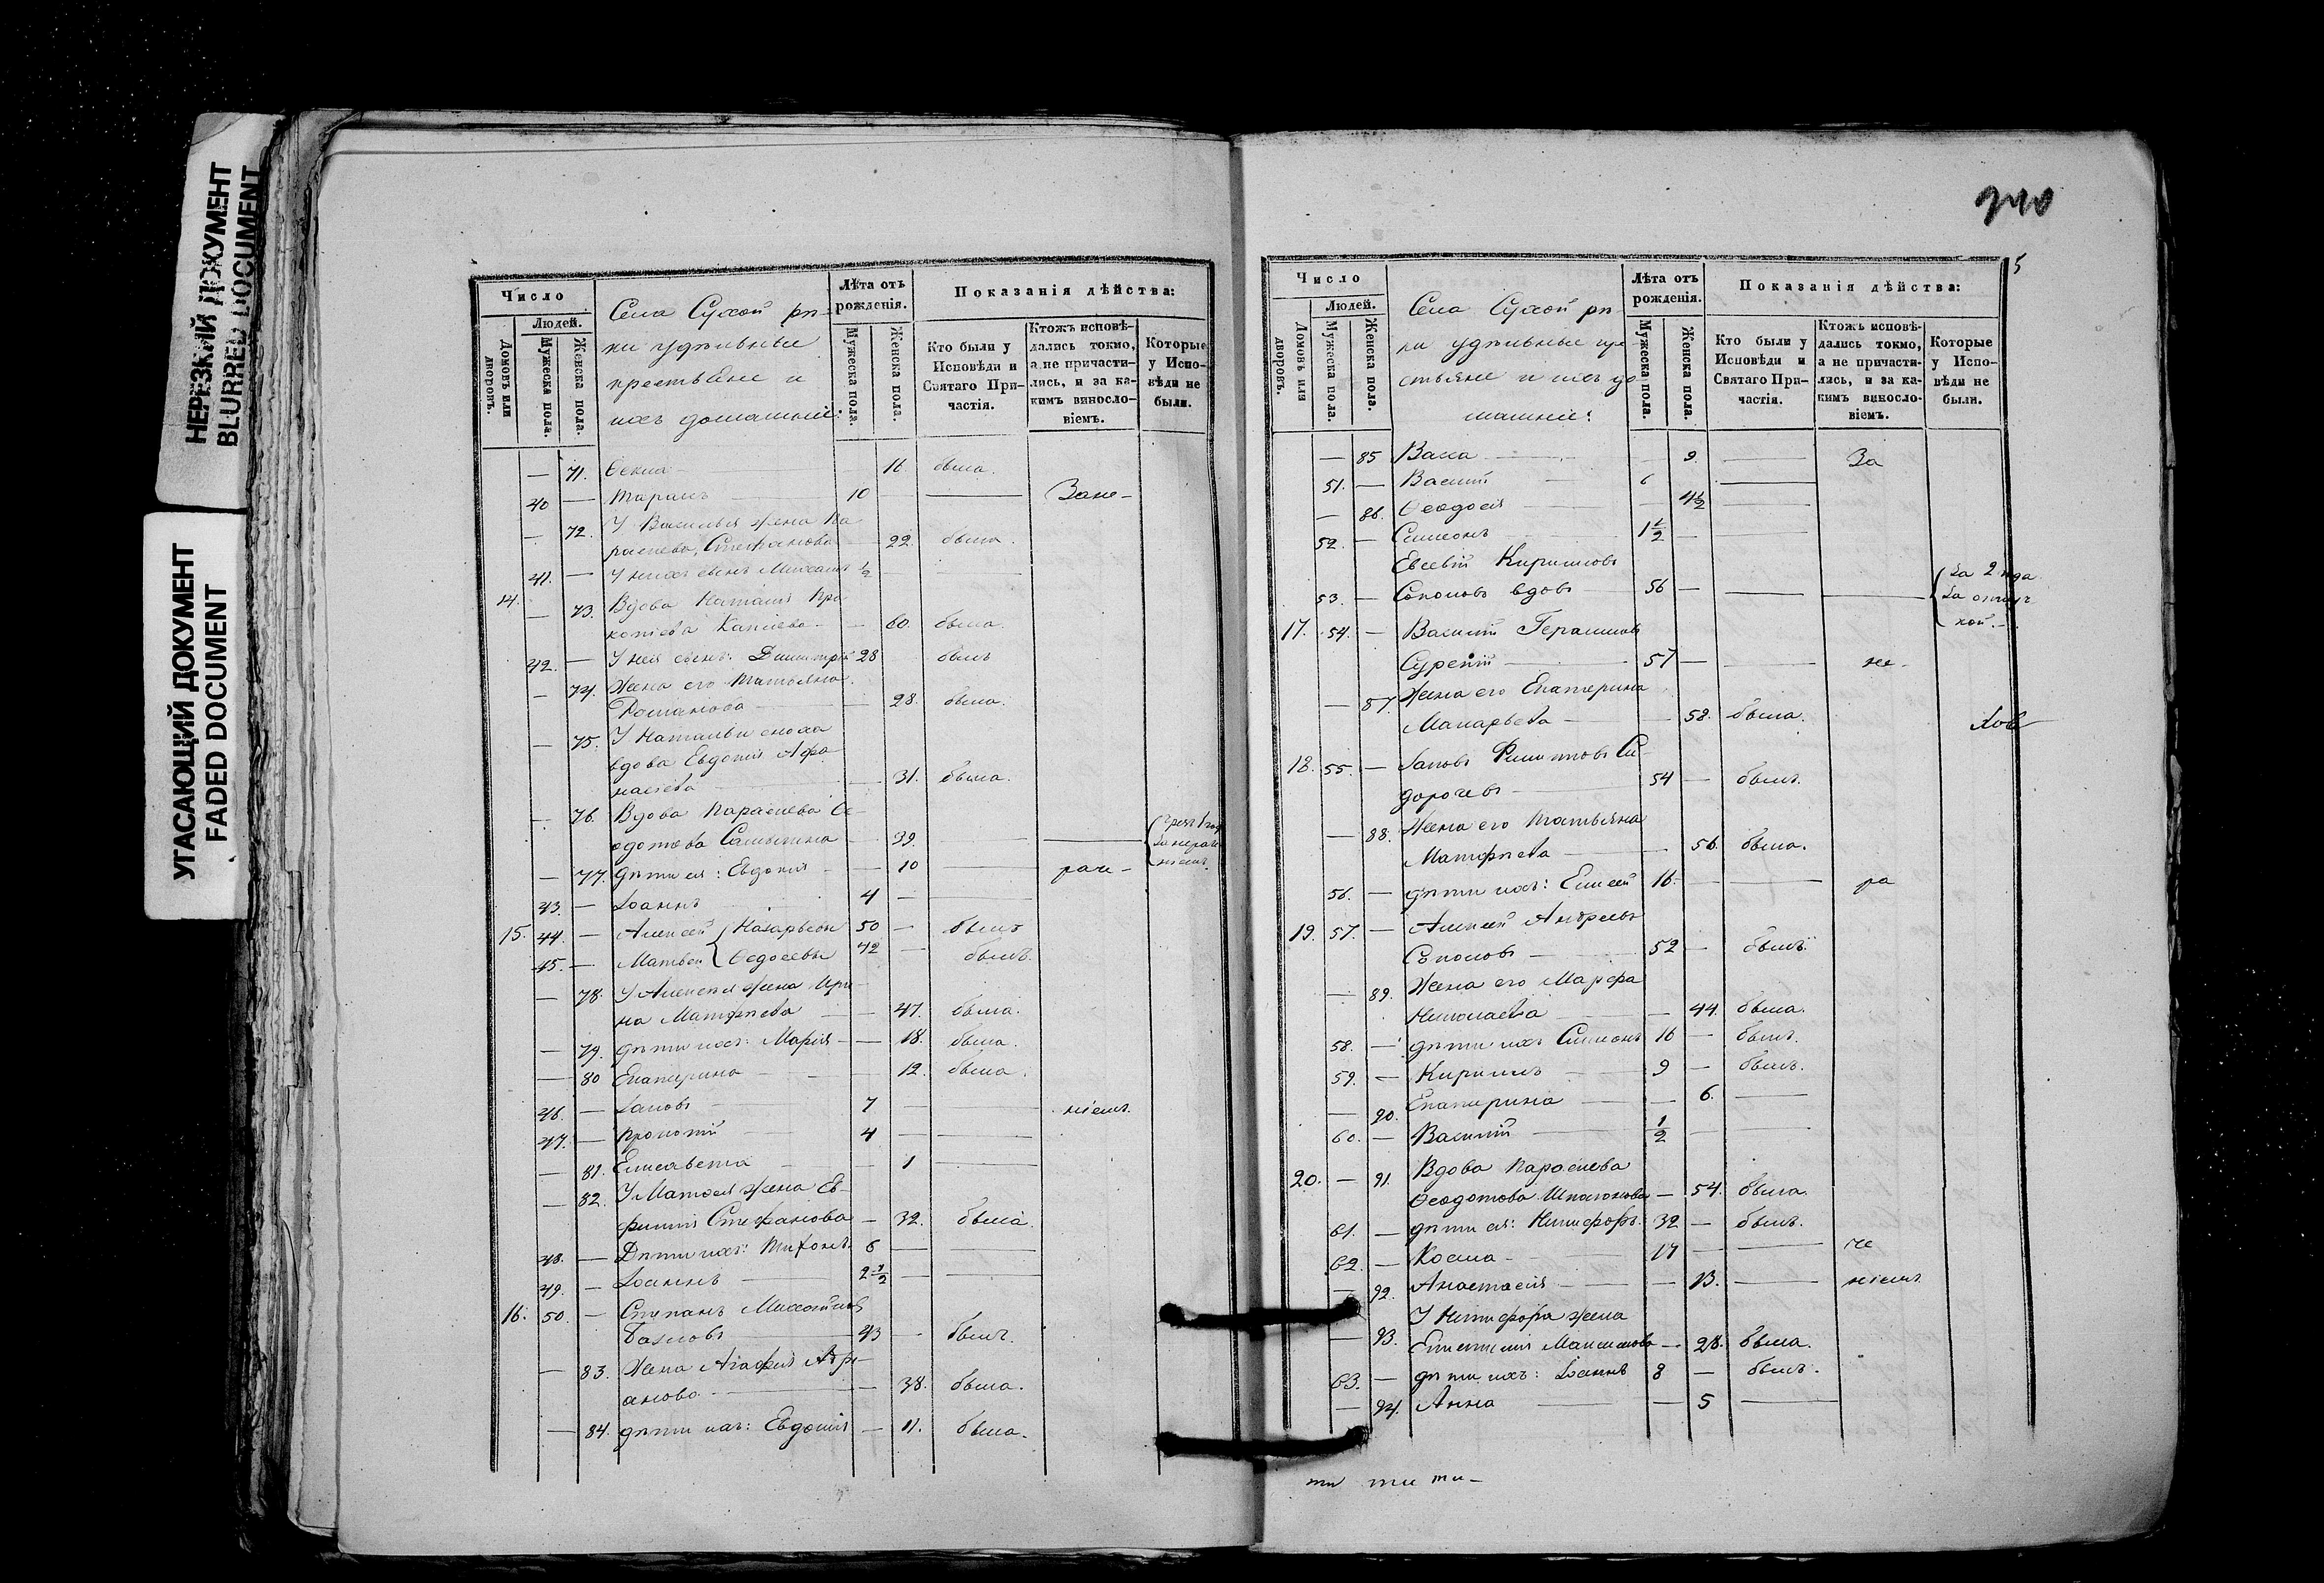 НЕРЕЗКИЙ ДОКУМЕНТ
BLURRED DOCUMENT
УГАСАЮЩИЙ ДОКУМЕНТ
FADED DOCUMENT
Число
Людей.
Домовъ или дворовъ.
Мужеска пола.
Женска пола.
Села Сухой рѣ-
ки удѣльные
крестьяне и
ихъ домашніе:
Лѣта отъ рожденія.
Мужеска пола.
Женска пола.
Показанія дѣйства:
Кто были у Исповѣди и Святаго Причастія.
Ктожъ исповѣ-дались токмо, а не причасти-лись, и за ка-кимъ винословіемъ.
Которые у Испо-вѣди не были.
— 71. Ѳекла — 16. была.
40 — Тарасъ 10 — Зане-
— 72. У Василья жена Па-
раскева Стефанова — 22. была.
41. — У нихъ сынъ Михаилъ ½ —
14. — 73. Вдова Наталія Про-
копіева — 60. была.
42. — У нея сынъ: Димитрій 28 былъ
— 74. Жена его Татьяна
Романова — 28. была.
— 75. У Натальи сноха
вдова Евдокія Афа-
насіева — 31. была.
— 76. Вдова Параскева Ѳе-
одотова — 39. — —
— 77. Дѣти ея: Евдокія — 10 — раче-
43. — Іоаннъ 4 —
15. 44. — Алексѣй Назарьевъ 50 — былъ
45. — Матвей Ѳедосеевъ 42 — былъ.
— 78. У Алексѣя жена Ири-
на Матфѣева — 47. была.
— 79. Дѣти ихъ: Марія — 18. была.
— 80 Екатерина — 12. была.
46. — Іаковъ 7 — ніемъ.
47. — Прокопій 4 —
— 81. Елисавета — 1 —
— 82. У Матвея жена Ев-
фимія Стефанова — 32. была.
48. — Дѣти ихъ: Тихонъ 6 —
49. — Іоаннъ 2½ —
16. 50. — Степанъ
43 — былъ.
— 83. Жена Агафія Адрі-
анова — 38. была.
— 84. дѣти ихъ: Евдокія — 11. была.
240
5
Число
Людей.
Домовъ или дворовъ.
Мужеска пола.
Женска пола.
Села Сухой рѣ-
ки удѣльные кре-
стьяне и ихъ до-
машніе:
Лѣта отъ рожденія.
Мужеска пола.
Женска пола.
Показанія дѣйства:
Кто были у Исповѣди и Святаго Причастія.
Ктожъ исповѣ-дались токмо, а не причасти-лись, и за ка-кимъ винословіемъ.
Которые у Испо-вѣди не были.
— 85 Васса — 9. — За
51. — Василій 6 —
— 86. Ѳеодосія — 4½ —
52. — Симеонъ 1½ —
Евсевій Кириловъ
53. — Соколовъ вдовъ 56 — — За 2 года за отлуч-кой.
17. 54. — Василій Герасимовъ
57 — не-
— 87. Жена его Екатерина
Макарьева — 58. была.
18. 55. — Іаковъ Филиповъ Си-
доровъ 54 — былъ.
— 88. Жена его Татьяна
Матфѣева — 56. была.
56. — дѣти ихъ: Елисей 16. — ра
19. 57. — Алексѣй Андреевъ
Соколовъ 52 — былъ.
— 89. Жена его Марфа
Николаева — 44. была.
58. — дѣти ихъ Симеонъ 16 — былъ.
59. — Кириллъ 9 — былъ.
— 90. Екатерина — 6. —
60. — Василій ½ —
20. — 91. Вдова Параскева
Ѳеодотова — 54. была.
61. — дѣти ея: Никифоръ 32 — былъ.
62. — Косма 17 — че
— 92. Анастасія — 13. — ніемъ
У Никифора жена
— 93. Максимова — 28. была.
63. — дѣти ихъ: Іоаннъ 8 — былъ.
— 94. Анна — 5 —
ти ти ти-